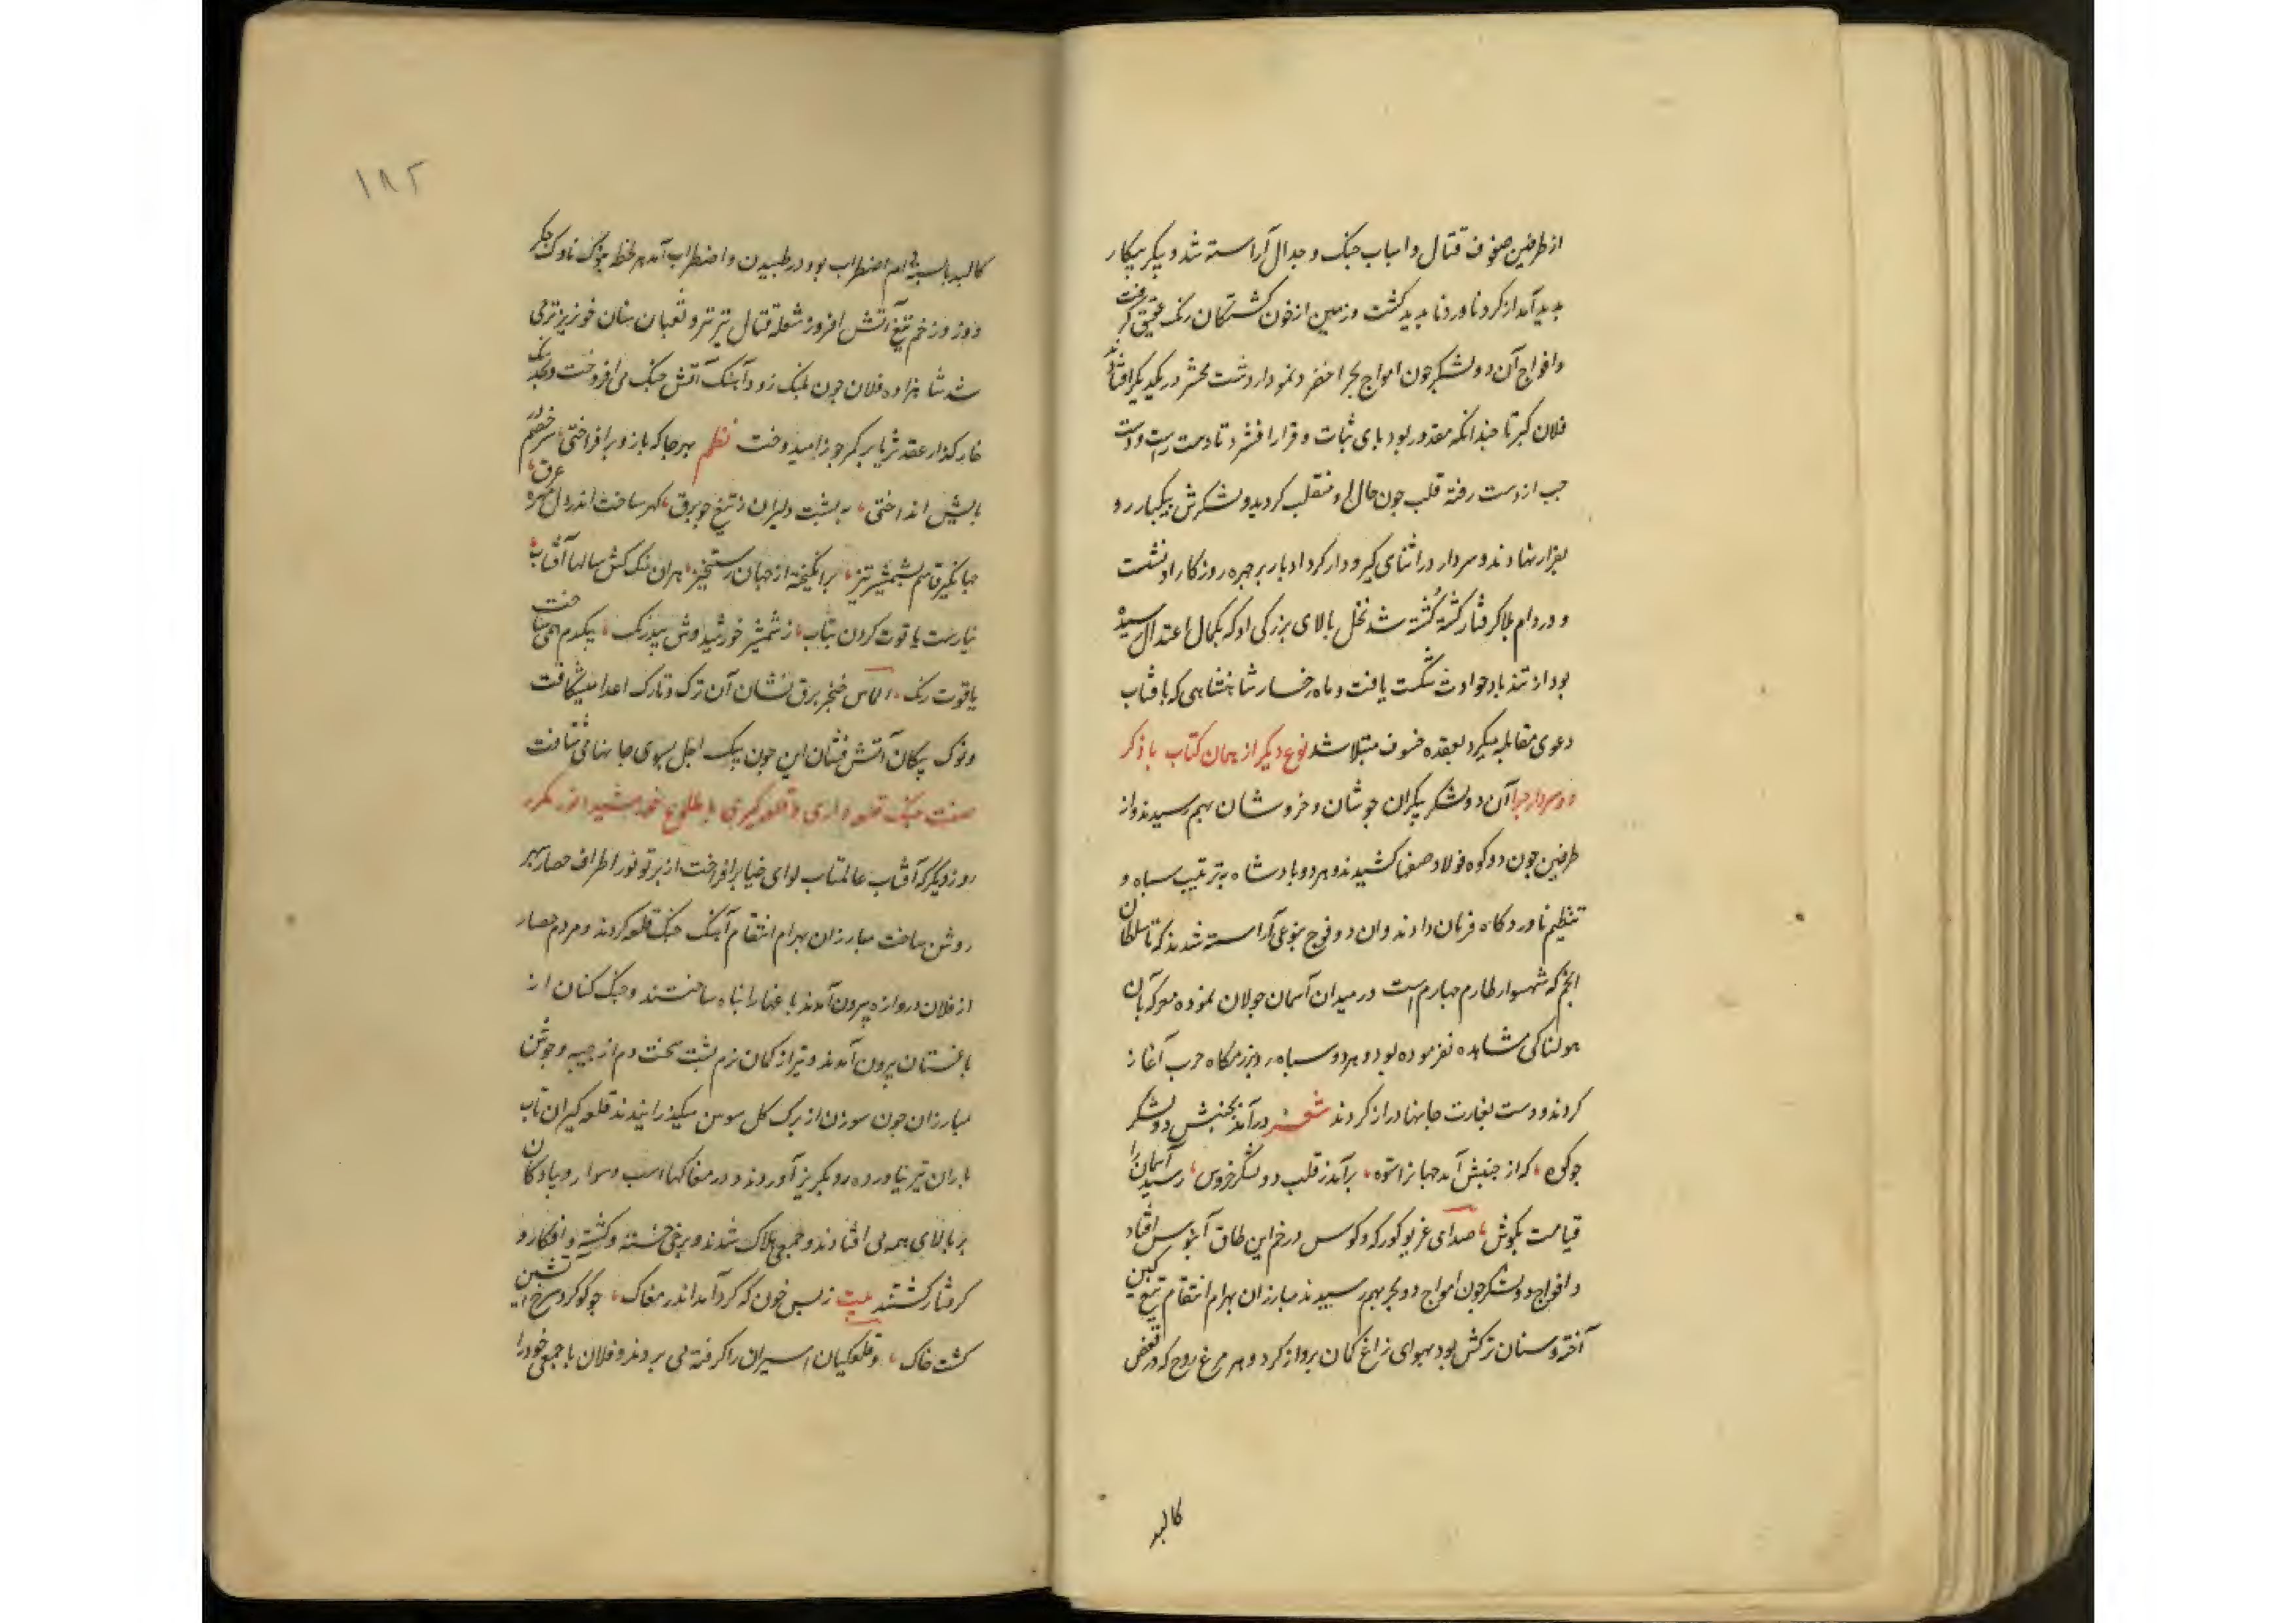 از طرفین صفوف قتال و اسباب جنک و جدال آراسته شد و پیکر پیکار
پدید آمد از کرد ناورد نا پدید کشت و زمین از خون کشتکان رنک عقیق کرفت
و افواج آن دو لشکر چون امواج بحر اخضر و نمودار دشت محشر در یکدیکر افتاد
فلان کبر تا چندانکه مقدور بود پای ثبات و قرار افشرد تا دست راست و دست
چپ از دست رفته قلب چون حال او منقلب کردید و لشکرش بیکبار رو
بفرار نهادند و سردار در اثنای کیر و دار کرد ادبار بر چهره روزکار او نشست
و در دام بلا کرفتار کشته کُشته شد نخل بالای بزرکی او که بکمال اعتدال رسیده
بود از تند باد حوادث شکست یافت و ماه رخسار شاهنشاهی که با فتاب
دعوی مقابله میکرد بعقده خسوف مبتلا شد نوع دیکر از همان کتاب با ذکر
دو سردار جوا آن دو لشکر بیکران جوشان و خروشان بهم رسیدند و از
طرفین چون دو کوه فولاد صفها کشیدند و هر دو پادشاه بترتیب سپاه و
تنظیم ناوردکاه فرمان دادند و ان دو فوج بنوعی آراسته شدند که تا سلطان
انجم که شهسوار طارم چهارم است در میدان آسمان جولان نموده معرکه بآن
هولناکی مشاهده نفرموده بود و هر دو سپاه در رزمکاه حرب آغاز
کردند و دست بغارت جانها دراز کردند شعر در آمد بجنبش دو لشکر
چو کوه، که از جنبش آمد جهانرا ستوه، برآمد ز قلب دو لشکر خروش، رسید آسمان را
قیامت بکوش، صدای غریو کورکه و کوس در خم این طاق آبنوس افتاد
و افواج دو لشکر چون امواج دو بحر بهم رسیدند مبارزان بهرام انتقام تیغ کین
آخته و سنان ترکش بود بهوای زاغ کمان پرواز کرد و هر مرغ روح که در قفص
کالبد
۱۸۲
کالبد بسته دام اضطراب بود در طپیدن و اضطراب آمد هر لحظه بنوک ناوک جکر
دوز و زخم تیغ آتش افروز شعله قتال تیزتر و ثعبان سنان خونریزتر می
شد شاهزاده فلان چون پلنک زود آهنک آتش جنک می افروخت و بخدنک
خار کذار عقد ثریا بر کمر جوزا میدوخت نظم بهر جا که بازو برافراختی، سر خصم در
پایش انداختی، به پشت دلیران ز تیغ چو برق، کهر ساخت اندر دل مهره غرق،
جهانکیر قاسم بشمشیر تیز، برانکیخته از جهان رستخیز، بران سنک کش سالها آفتاب،
نیارست یاقوت کردن بتاب، ز شمشیر خورشید وش بیدرنک، بیکدم همی ساخت
یاقوت رنک، الماس خنجر برق نشان آن ترک و تارک اعدا میشکافت
و نوک پیکان آتش فشان این چون پیک اجل بسوی جانها می شتافت
صفت جنک قلعه داری و قلعه کیری با طلوع خورشید انور مکرر
روز دیکر که آفتاب عالمتاب لوای ضیا برافراخت از پرتو نور اطراف حصار سپهر
روشن ساخت مبارزان بهرام انتقام آهنک جنک قلعه کردند و مردم حصار
از فلان دروازه بیرون آمدند باغها را پناه ساختند و جنک کنان از
باغستان بیرون آمدند و تیر از کمان نرم پشت سخت دم از جیبه و جوشن
مبارزان چون سوزن از برک کل سوسن میکذرانیدند قلعه کیران تاب
باران تیر نیاورده رو بکریز آوردند و در مغاکها اسب و سوار و پیادکان
بر بالای هم می افتادند و جمعی هلاک شدند و برخی خسته و کشته و افکار و
کرفتار کشتند بیت ز بس خون که کرد آمد اندر مغاک، چو کوکرد سرخ آتشین
کشت خاک، و قلعکیان اسیران را کرفته می بردند و فلان با جمعی خود را